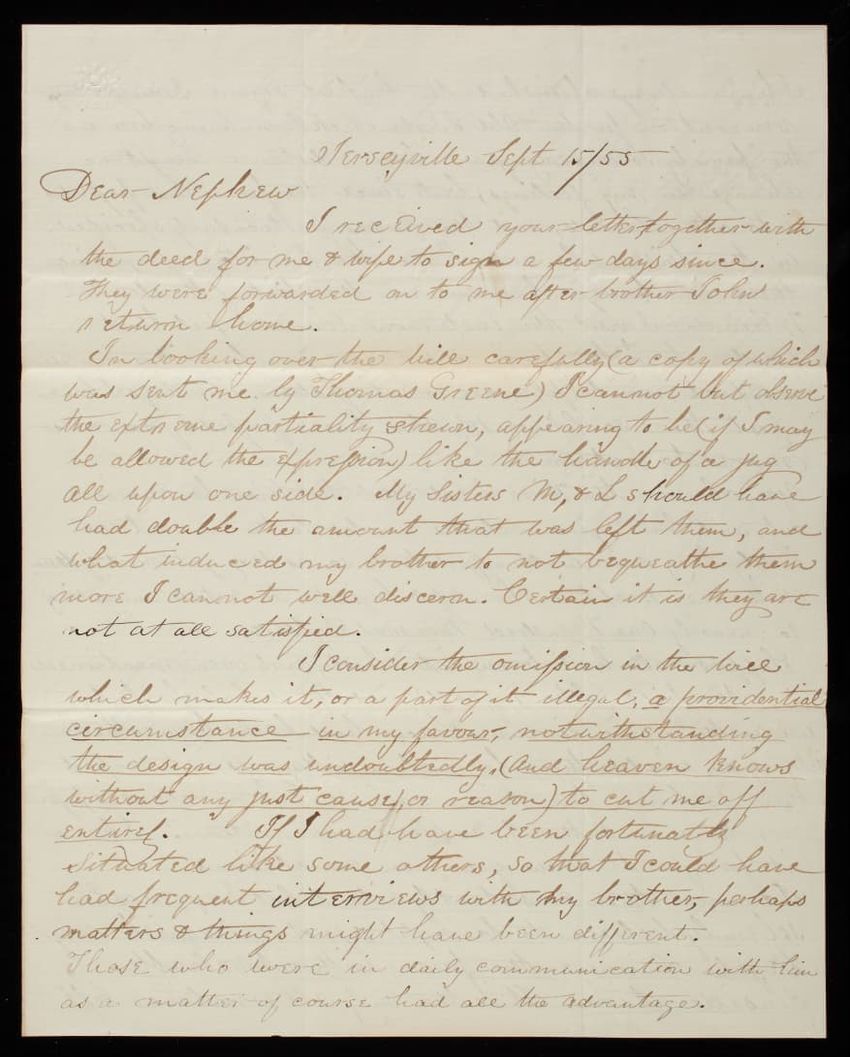 Jerseyville Sept 15/55
Dear Nephew
I received your letter, together with
the deed for me & wife to sign a few days since.
They were forwarded on to me after brother John
return home.
In looking over the will carefully (a copy of which
was sent me by Thomas Greene) I cannot but observe
the extreme partiality shewn, appearing to be (if I may
be allowed the expression) like the handle of a jug
all upon one side. My Sisters M, & L should have
had double the amount that was left them, and
what induced my brother to not bequeathe them
more I cannot well discern. Certain it is they are
not at all satisfied.
I consider the omission in the will
which makes it, or a part of it illegal, a providential
circumstance in my favour, notwithstanding
the design was undoubtedly, (And heaven knows
without any just cause, or reason) to cut me off
entirely. If I had have been fortunately
Situated like some others, so that I could have
had frequent interviews with my brother, perhaps
matters & things might have been different.
Those who were in daily communication with him
as a matter of course had all the advantage.